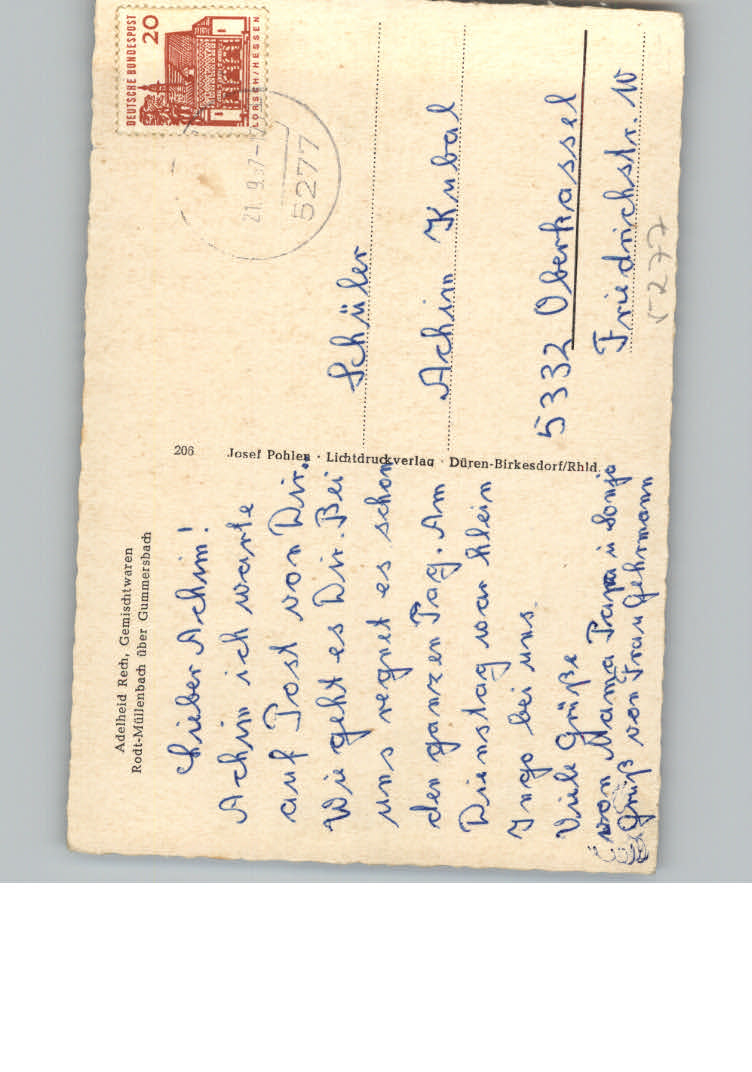 Adelheid Rech, Gemischtwaren
Rodt-Müllenbach über Gummersbach
Lieber Achim!
Achim ich warte
auf Post von Dir.
Wie geht es Dir. Bei
uns regnet es schon
den ganzen Tag. Am
Dienstag war klein
Ingo bei uns.
Viele Grüße
von Mama Papa u Sonja
Gruß von Frau Gehrmann
206 Josef Pohlen · Lichtdruckverlag · Düren-Birkesdorf/Rhld.
DEUTSCHE BUNDESPOST
20
LORSCH/HESSEN
21.9.67-
5277
Schüler
Achim Kubal
5332 Oberkassel
Friedrichstr. 10
5277